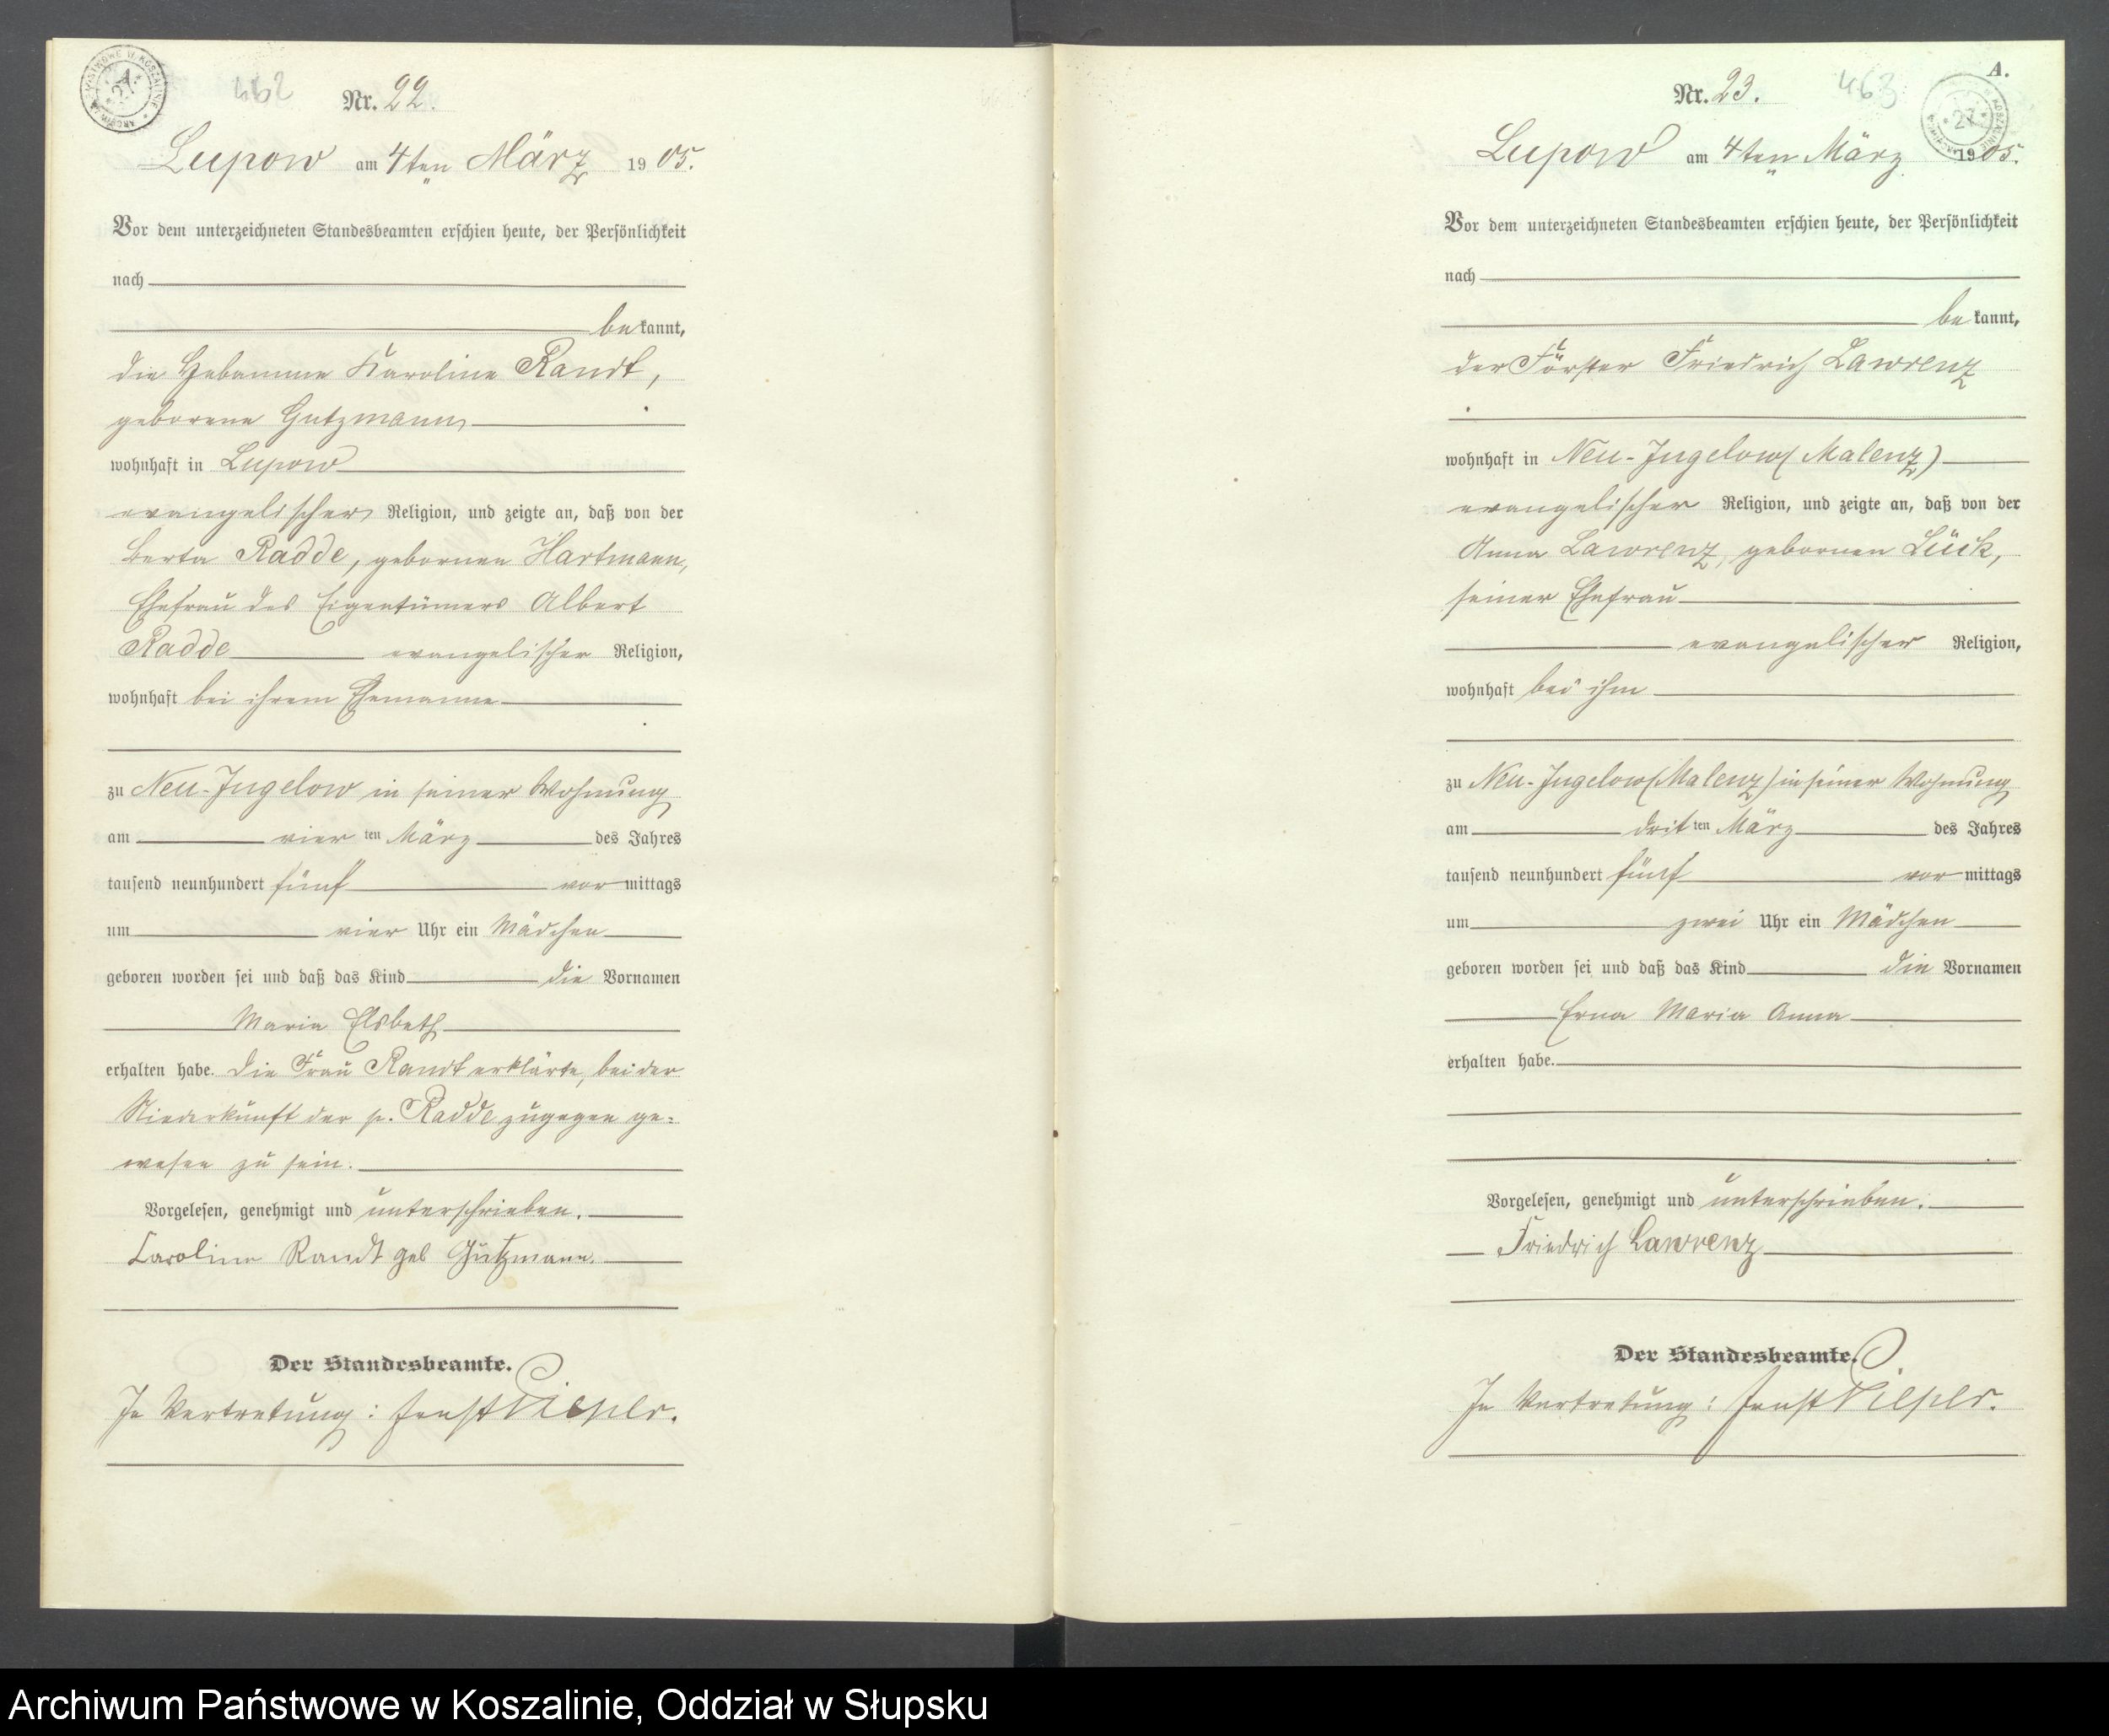 462
Nr. 22.
Lupow am 4ten März 1905.
Vor dem unterzeichneten Standesbeamten erschien heute, der Persönlichkeit
nach
bekannt,
die Hebamme Karoline Randt,
geborene Gutzmann
wohnhaft in Lupow
evangelischer Religion, und zeigte an, daß von der
Berta Radde, gebornen Hartmann,
Ehefrau des Eigentümers Albert
Radde evangelischer Religion,
wohnhaft bei ihrem Ehemanne
zu Neu-Jugelow in seiner Wohnung
am vier ten März des Jahres
tausend neunhundert fünf vormittags
um vier Uhr ein Mädchen
geboren worden sei und daß das Kind die Vornamen
Maria Elsbeth
erhalten habe. Die Frau Randt erklärte, bei der
Niederkunft der p. Radde zugegen ge=
wesen zu sein.
Vorgelesen, genehmigt und unterschrieben.
Caroline Randt geb Gutzmann.
Der Standesbeamte.
In Vertretung: Ernst
A.
463
Nr. 23.
27
Lupow am 4ten März 1905.
Vor dem unterzeichneten Standesbeamten erschien heute, der Persönlichkeit
nach
bekannt,
der Förster Friedrich Lawrenz
wohnhaft in Neu-Jugelow (Malenz)
evangelischer Religion, und zeigte an, daß von der
Anna Lawrenz, gebornen Lück,
seiner Ehefrau
evangelischer Religion,
wohnhaft bei ihm
zu Neu-Jugelow (Malenz) in seiner Wohnung
am dritten März des Jahres
tausend neunhundert fünf vormittags
um zwei Uhr ein Mädchen
geboren worden sei und daß das Kind die Vornamen
Erna Maria Anna
erhalten habe.
Vorgelesen, genehmigt und unterschrieben.
Friedrich Lawrenz
Der Standesbeamte.
In Vertretung: Ernst
Archiwum Państwowe w Koszalinie, Oddział w Słupsku